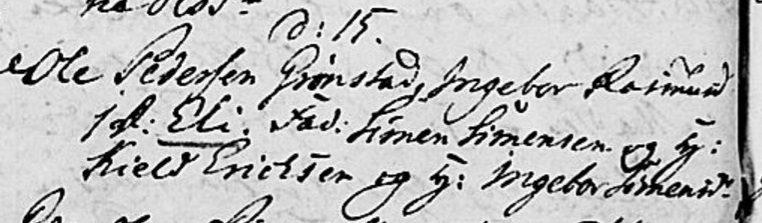 d: 15.
Ole Pedersen Grønstad, Ingebor Rasmusd
1 d: Eli. Fad: Simen Simensen og H:
Kield Erichsen og H: Ingebor Simensd.